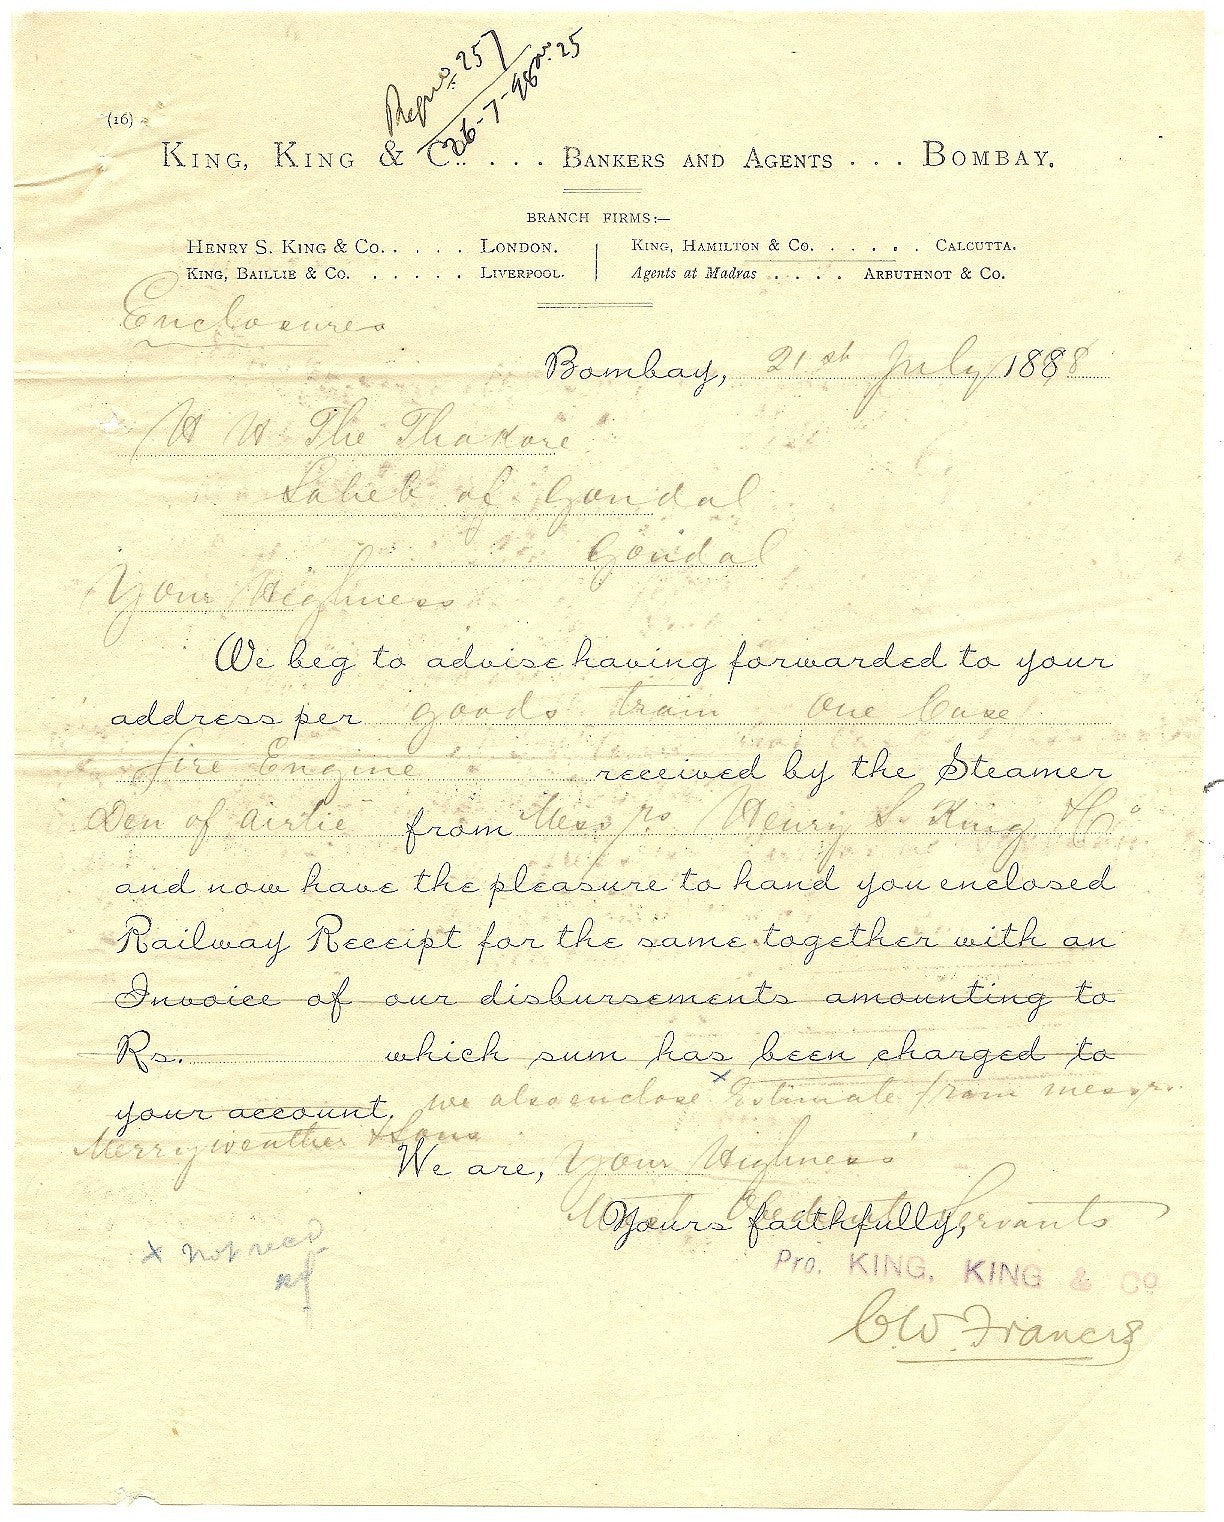 257
26-7-98 no. 25
(16)
King, King & Co. . . . Bankers and Agents . . . Bombay.
BRANCH FIRMS:—
Henry S. King & Co. . . . . . London. King, Hamilton & Co. . . . . . Calcutta.
King, Baillie & Co. . . . . . . Liverpool. Agents at Madras . . . . Arbuthnot & Co.
Enclosures
Bombay, 21st July 1888
H H The Thakore
Saheb of Gondal
Gondal
Your Highness
We beg to advise having forwarded to your
address per goods train One Case
Fire Engine received by the Steamer
Den of Airlie from Messrs Henry S. King & Co
and now have the pleasure to hand you enclosed
Railway Receipt for the same together with an
Invoice of our disbursements amounting to
Rs. which sum has been charged to
your account. we also enclose x Estimate from messrs.
Merryweather & Sons
We are, Your Highness'
Most Obedient Servants
Yours faithfully,
x not recd
Pro. KING, KING & Co
C W. Francis